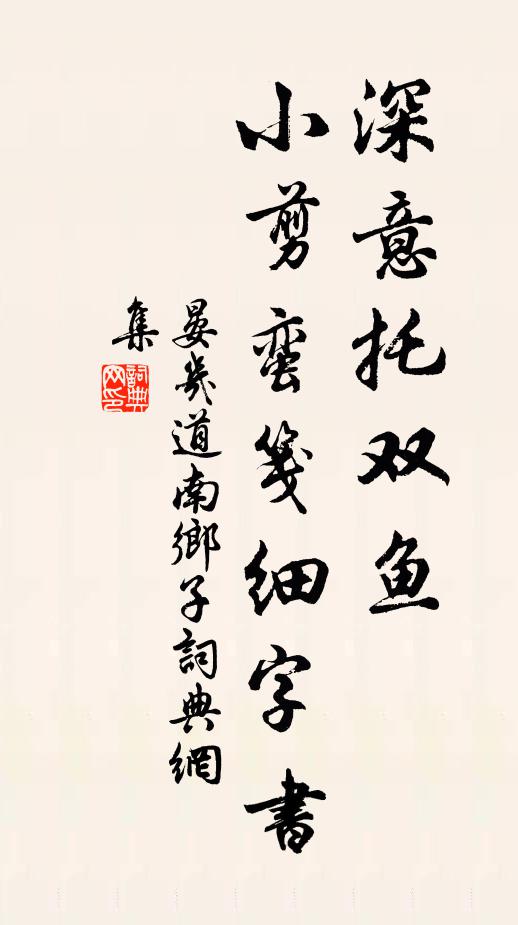 深意托双鱼
小剪蛮笺细字書
晏幾道南鄉子詞典網
集
詞典网印